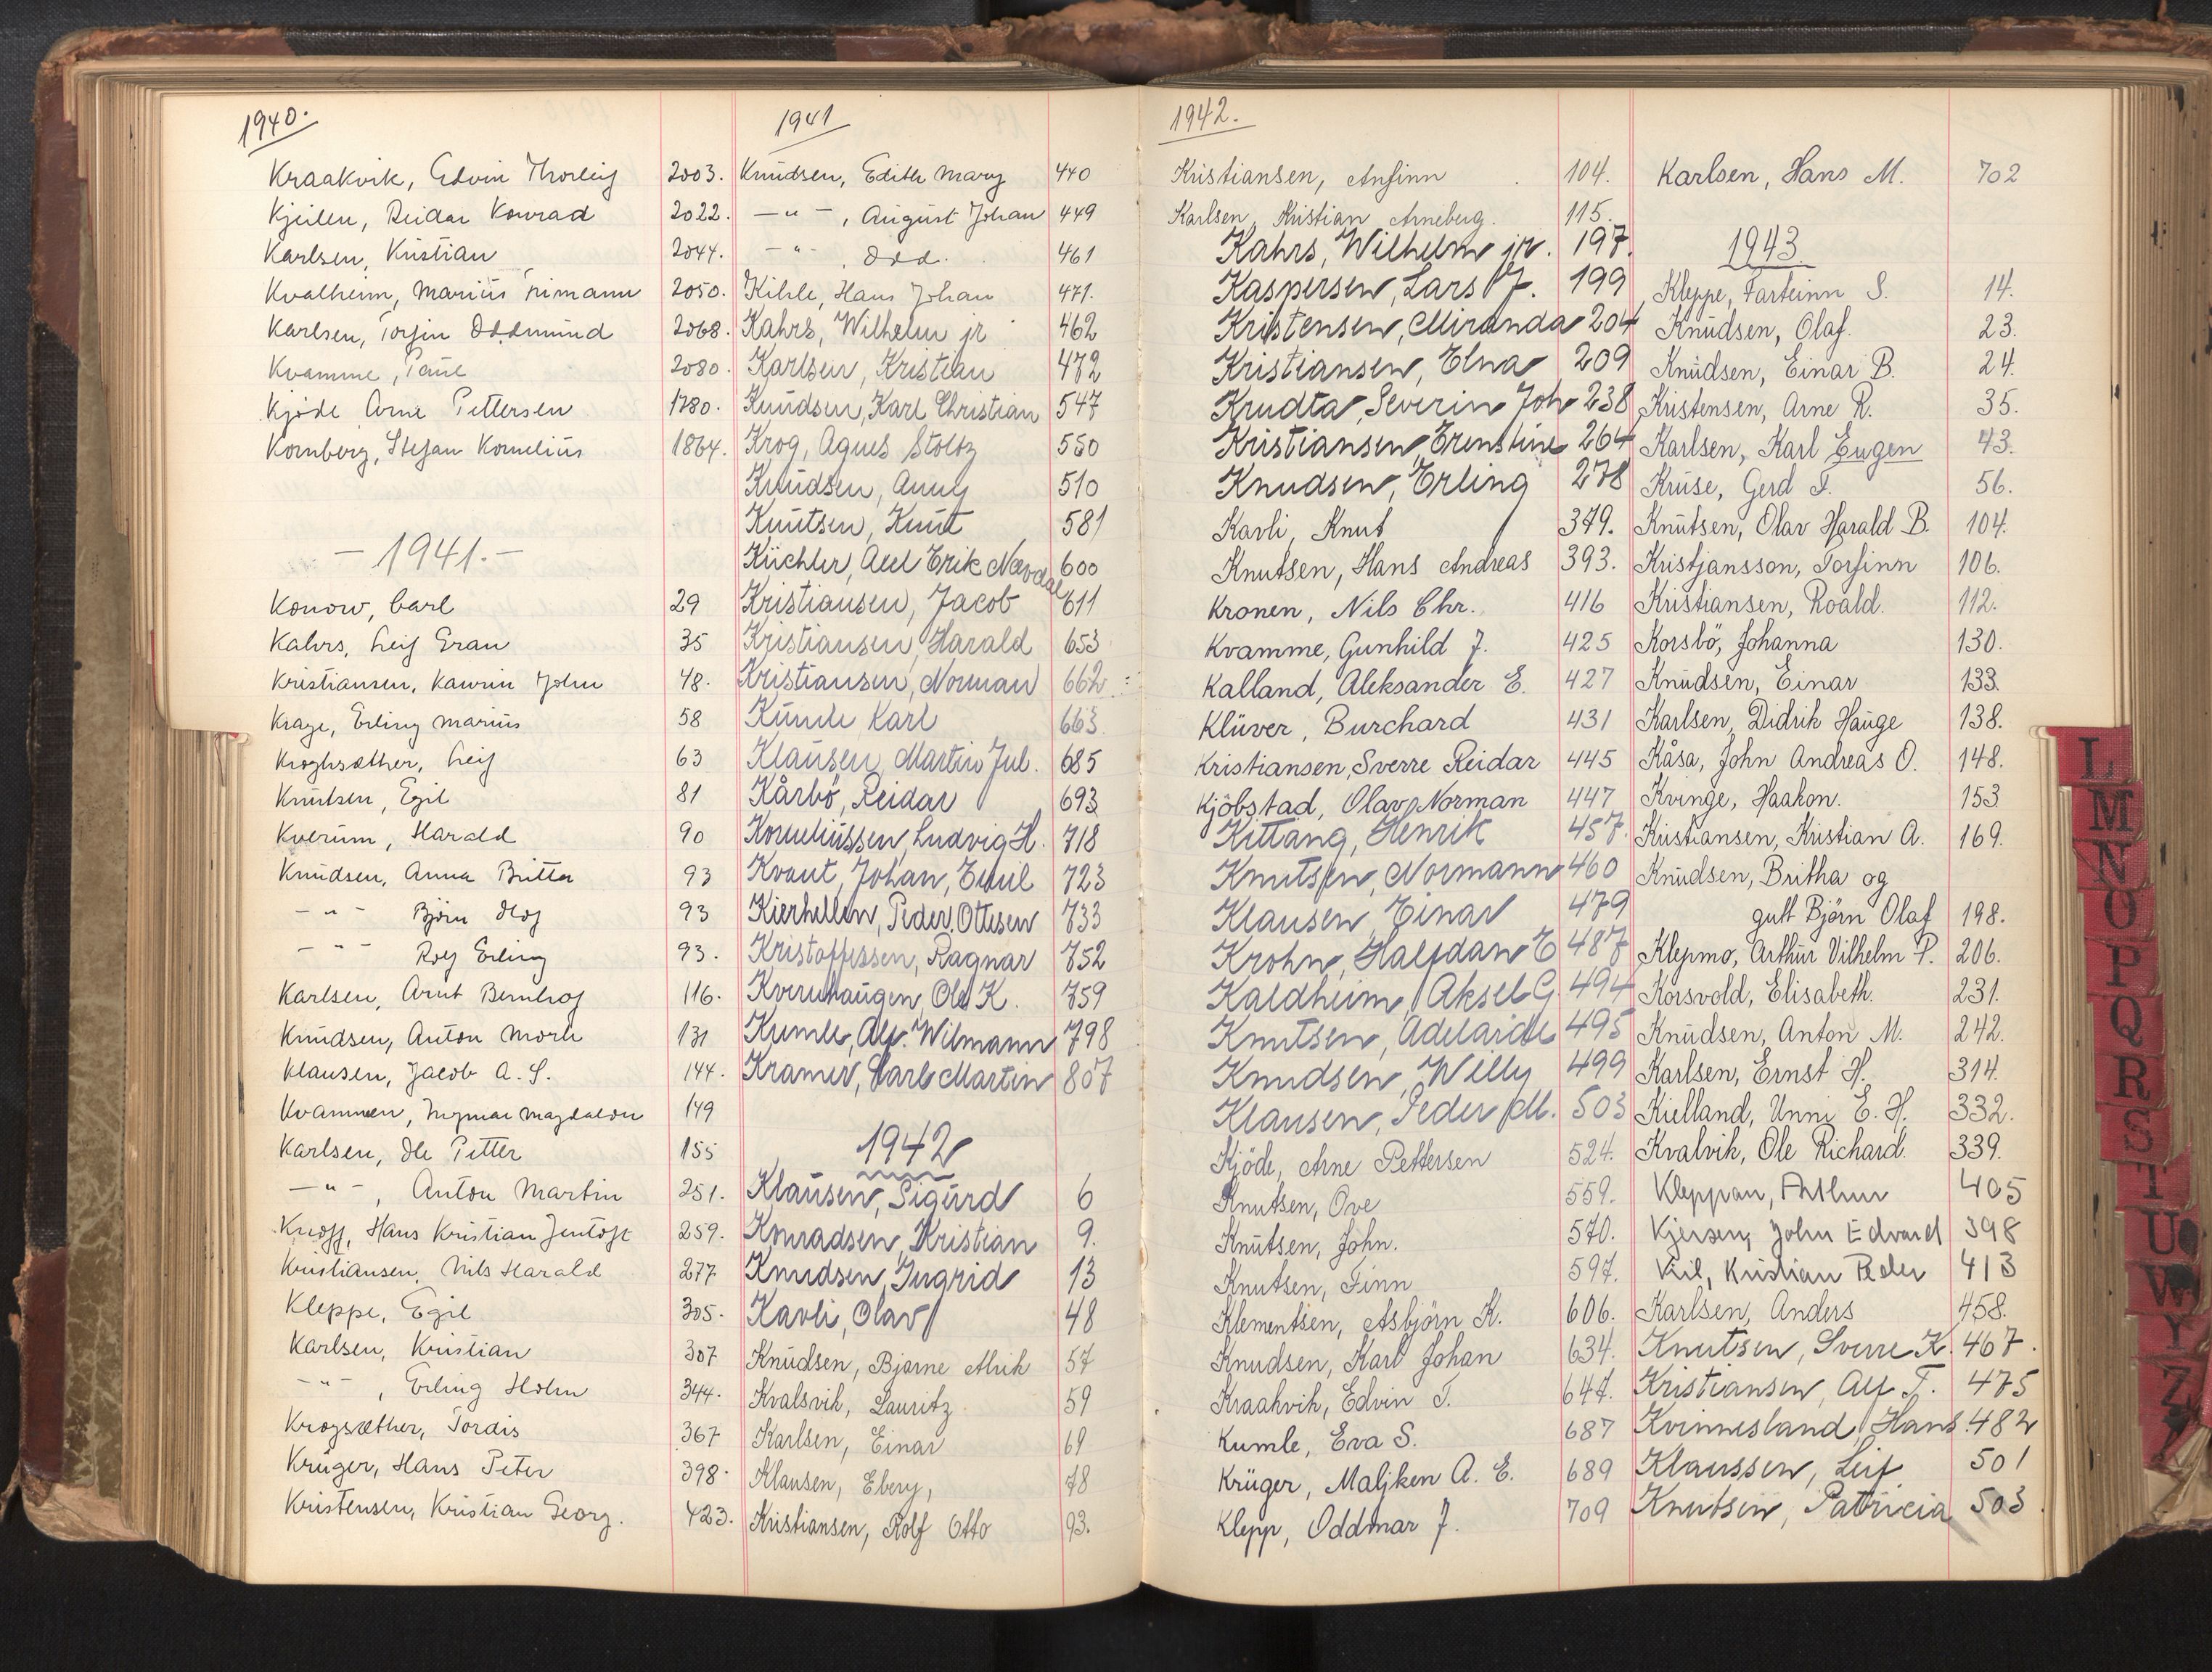 1940.
Kraakvik, Edvin Thorleif 2003.
Kjeilen, Reidar Konrad 2022.
Karlsen, Kristian 2044.
Kvalheim, Marius 2050.
Karlsen, Torfin Oddmund 2068.
Kvamme, Paul 2080.
Kjöde Arne Pettersen 1780.
Kornberg, Stefan Kornelius 1864.
- 1941. -
Konow, Carl 29
Kahrs, Leif Gran 35
Kristiansen, John 48.
Krage, Erling Marius 58
Kroghsæther, Leif 63
Knutsen, Egil 81
Kverum, Harald 90
Knudsen, Anna Britta 93
- " - Björn Olof 93
- " - Rolf Erling 93.
Karlsen, Arnt Bernhof 116.
Knudsen, Anton 131
Klausen, Jacob A. S. 144.
Kvammen, Ingmar Magdalon 149
Karlsen, Ole Petter 155
- " -, Anton Martin 251.
Knoff, Hans Kristian Jentoft 259.
Kristiansen, Nils Harald 277
Kleppe, Egil 305.
Karlsen, Kristian 307
- " -, Erling Holm 344.
Krogsæther, Tordis 367
Krüger, Hans Peter 398.
Kristensen, Kristian Georg. 423.
1941
Knudsen, Edith Mary 440
- " -, August Johan 449
- " - , Odd. 461
Kihle, Hans Johan 471.
Kahrs, Wilhelm jr 462
Karlsen, Kristian 472
Knudsen, Karl Christian 547
Krog, Agnes Stoltz 550
Knudsen, Anny 510
Knutsen, Knut 581
Küchler, Axel Erik Nævdal 600
Kristiansen, Jacob 611
Kristiansen, Harald 653
Kristiansen, Norman 662
Karl 663
Klausen, Martin Jul. 685
Kårbö, Reidar 693
Korneliussen, Ludvig H. 718
Kvant, Johan, Emil 723
Kierhellen, Peder, Ottesen 733
Kristoffersen, Ragnar 752
Kvernhaugen, Ole K. 759
Kumle, Alf. Wilmann 798
Kramer, Carl Martin 807
1942
Klausen, Sigurd 6
Konradsen, Kristian 9.
Knudsen, Ingrid 13
Kavli, Olav 48
Knudsen, Bjarne Alrik 57
Kvalsvik, Lauritz 59
Karlsen, Einar 69
Klausen, Ebery, 78
Kristiansen, Rolf Otto 93.
1942.
Kristiansen, Anfinn 104.
Karlsen, Kristian Arneberg. 115.
Kahrs, Wilhelm jr. 197.
Kaspersen, Lars J. 199
Kristensen, Miranda 204
Kristiansen, Elna 209
Krudta, Severin Joh 238
Kristiansen, Ernstine 264
Knudsen, Erling 278
Kavli, Knut 379.
Knutsen, Hans Andreas 393.
Kronen, Nils Chr. 416
Kvamme, Gunhild J. 425
Kalland, Aleksander E. 427
Klüver, Burchard 431
Kristiansen, Sverre Reidar 445
Kjöbstad, Olav Norman 447
Kittang, Henrik 457.
Knutsen, Normann 460
Klausen, Einar 479
Krohn, Halfdan E 487
Kaldheim, Aksel G. 494
Knutsen, Adelaide 495
Knudsen, Willy 499
Klausen, Peder M. 503
Kjöde, Arne Pettersen 524.
Knutsen, Ove 559.
Knutsen, John. 570.
Knutsen, Finn 597.
Klementsen, Asbjörn K. 606.
Knudsen, Karl Johan 634.
Kraakvik, Edvin T. 647.
Kumle, Eva S. 687
Krüger, Maljken A. E. 689
Klepp, Oddmar J. 709
Karlsen, Hans M. 702
1943
Kleppe, Farteinn S. 14.
Knudsen, Olaf. 23.
Knudsen, Einar B. 24.
Kristensen, Arne R. 35.
Karlsen, Karl Eugen 43.
Kruse, Gerd F. 56.
Knutsen, Olav Harald B. 104.
Kristjansson, Torfinn 106.
Kristiansen, Roald. 112.
Korsbö, Johanna 130.
Knudsen, Einar 133.
Karlsen, Didrik Hauge 138.
Kåsa, John Andreas O. 148.
Kvinge, Haakon. 153
Kristiansen, Kristian A. 169.
Knudsen, Britha og
gutt Björn Olaf 198.
Klepmo, Arthur Vilhelm P. 206.
Korsvold, Elisabeth. 231.
Knudsen, Anton M. 242.
Karlsen, Ernst H. 314.
Kielland, Unni E. H. 332.
Kvalvik, Ole Richard. 339.
Kleppan, Arthur 405
John Edvard 398
Kil, Kristian Peder 413
Karlsen, Anders 458.
Knutsen, Sverre K. 467.
Kristiansen, Alf F. 475
Kvinnesland, Hans. 482
Klaussen, Leif 501
Knutsen, Patricia 503
L
M
N
O
P
Q
R
S
T
U
W
Y
Z